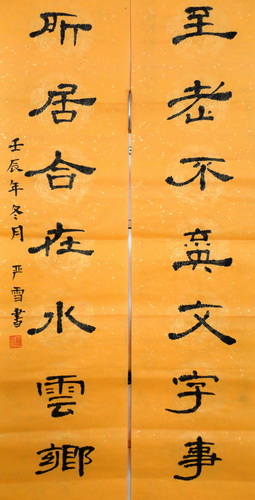 至老不文字事
所居合在水雲鄉
壬辰年冬月 严雪書